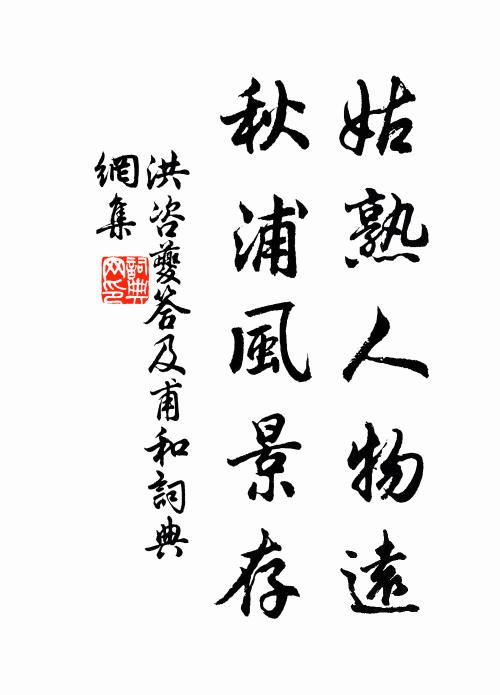 姑熟人物遠
秋浦風景存
洪咨夔答及甫和詞典
網集
詞典網印